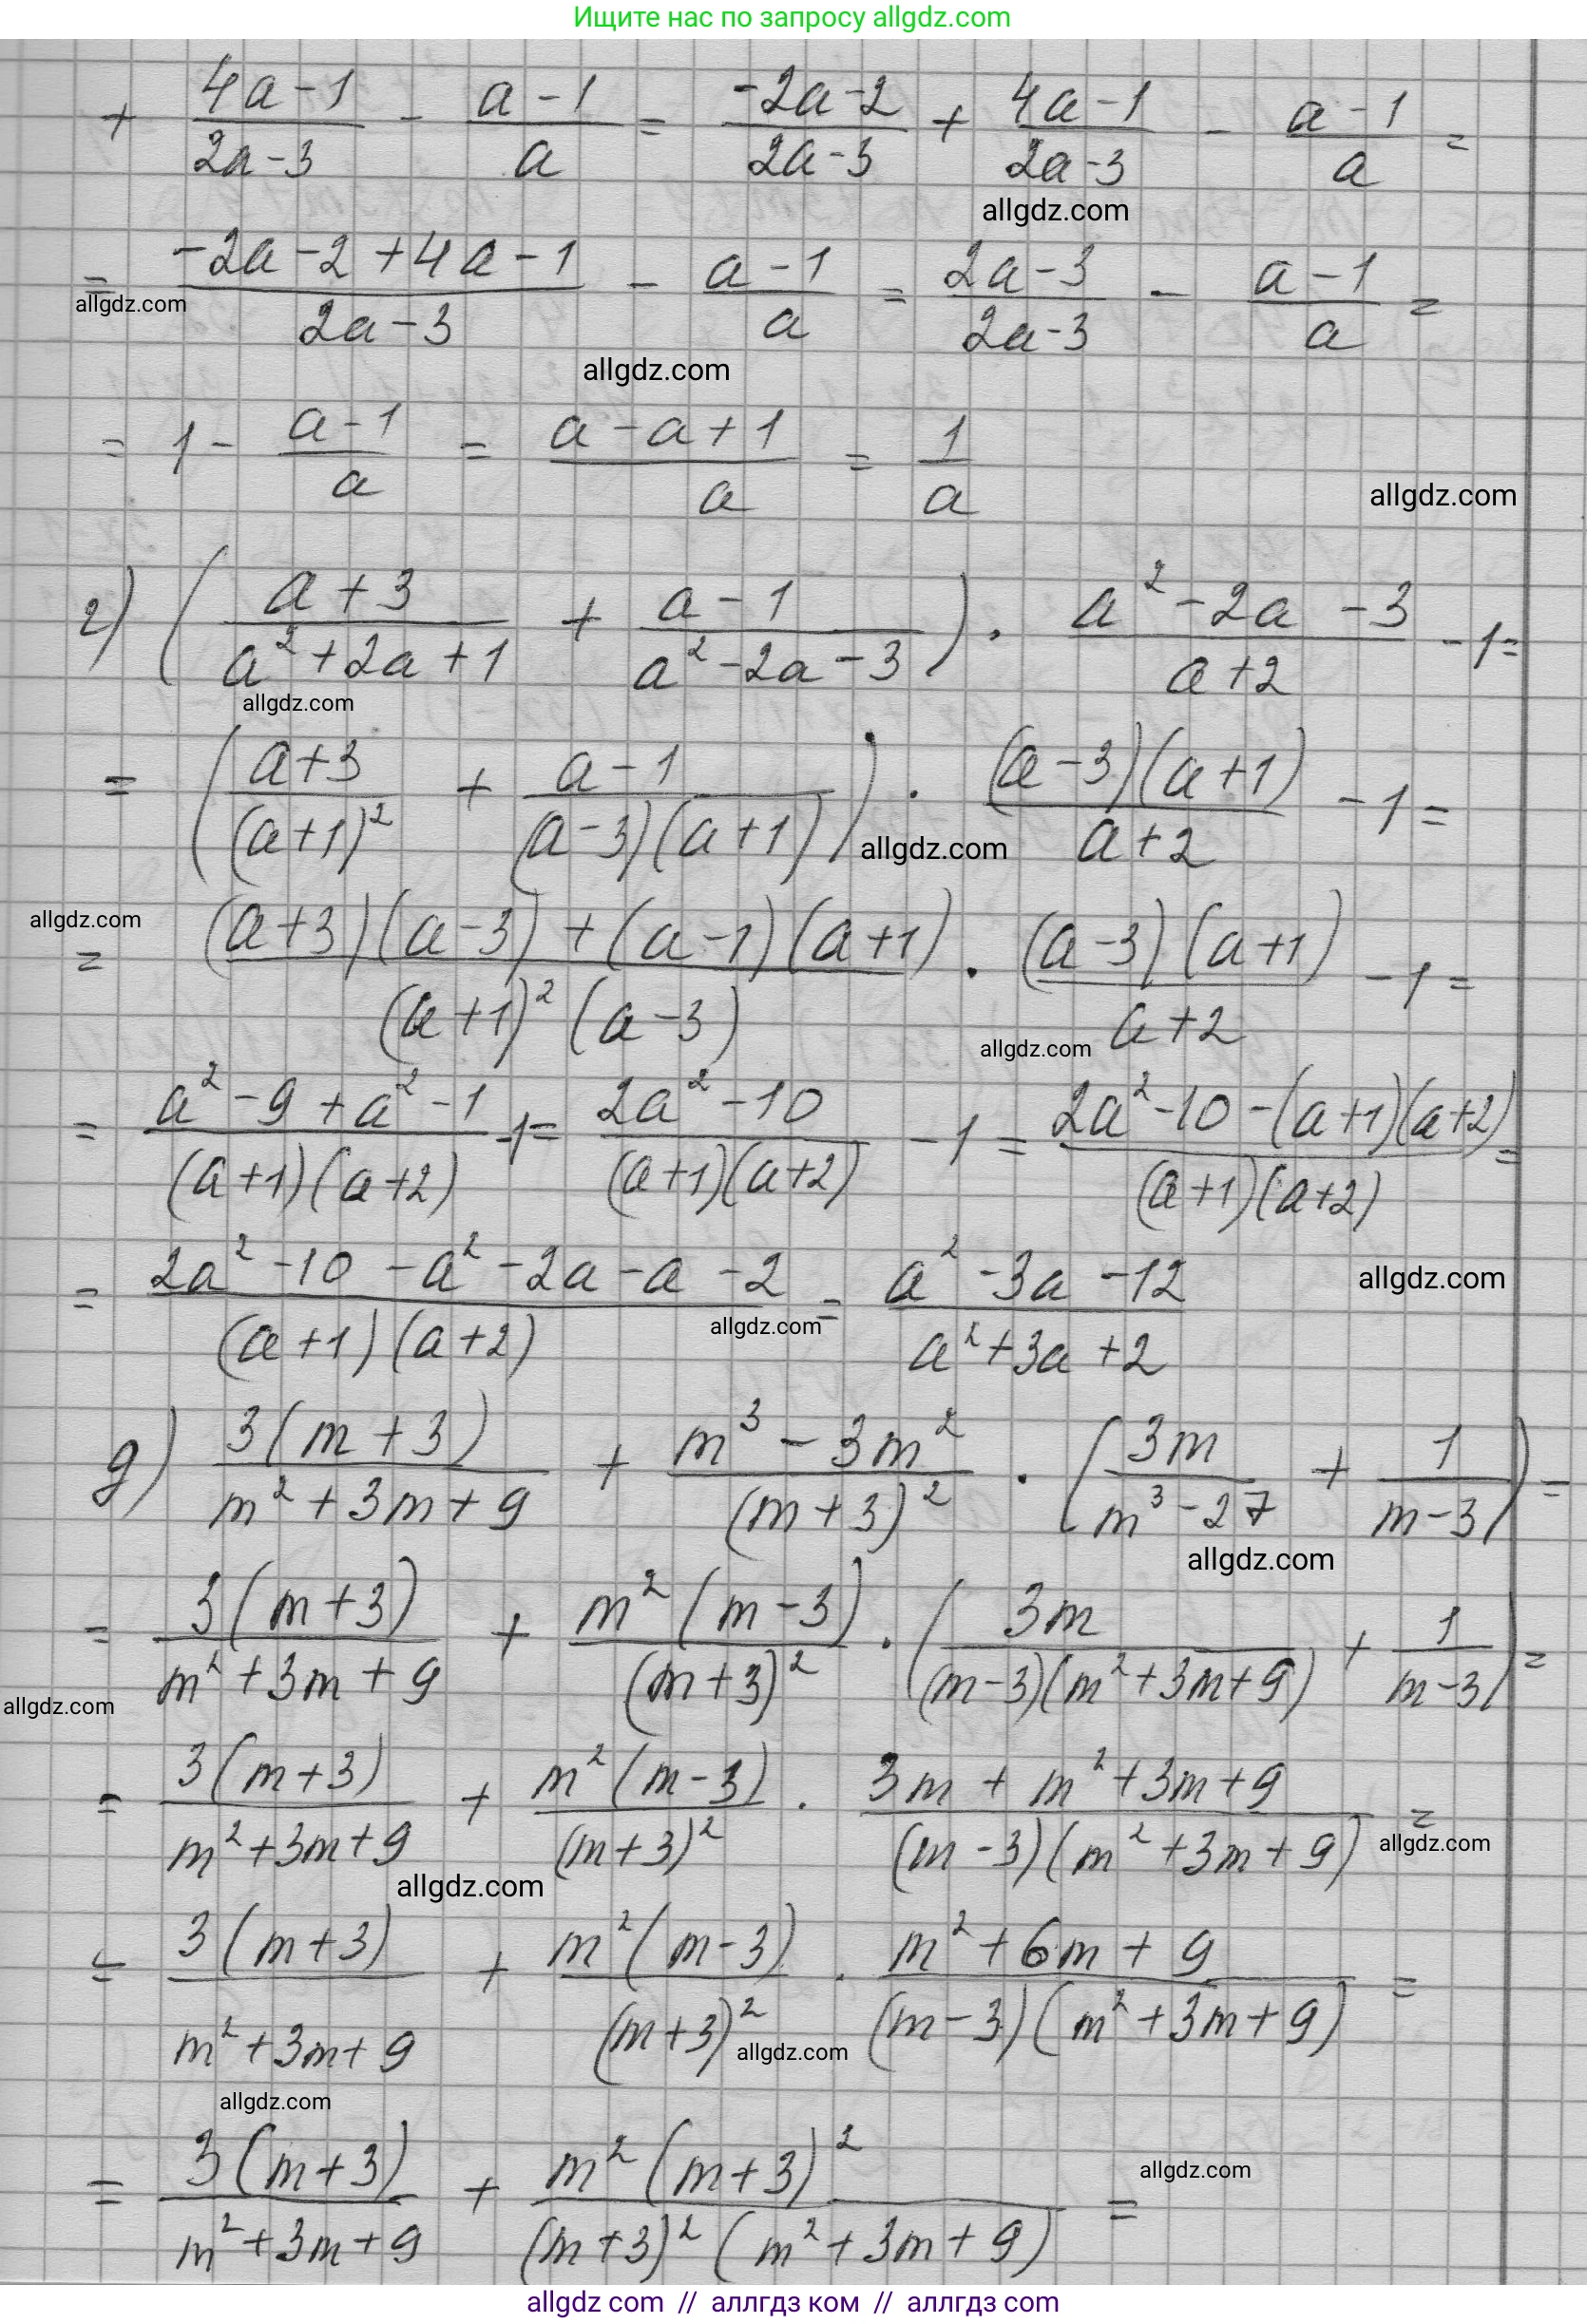 Ищите нас по запросу allgdz.com
+ (4a-1)/(2a-3) - (a-1)/a = (-2a-2)/(2a-3) + (4a-1)/(2a-3) - (a-1)/a =
allgdz.com
= (-2a-2+4a-1)/(2a-3) - (a-1)/a = (2a-3)/(2a-3) - (a-1)/a =
allgdz.com
allgdz.com
= 1 - (a-1)/a = (a-a+1)/a = 1/a
allgdz.com
г) ((a+3)/(a²+2a+1) + (a-1)/(a²-2a-3)) · (a²-2a-3)/(a+2) - 1 =
allgdz.com
= ((a+3)/(a+1)² + (a-1)/((a-3)(a+1))) · ((a-3)(a+1))/(a+2) - 1 =
allgdz.com
allgdz.com
= ((a+3)(a-3)+(a-1)(a+1))/((a+1)²(a-3)) · ((a-3)(a+1))/(a+2) - 1 =
allgdz.com
= (a²-9+a²-1)/((a+1)(a+2)) - 1 = (2a²-10)/((a+1)(a+2)) - 1 = (2a²-10-(a+1)(a+2))/((a+1)(a+2)) =
= (2a²-10-a²-2a-a-2)/((a+1)(a+2)) = (a²-3a-12)/(a²+3a+2)
allgdz.com
allgdz.com
д) 3(m+3)/(m²+3m+9) + (m³-3m²)/(m+3)² · (3m/(m³-27) + 1/(m-3)) =
allgdz.com
= 3(m+3)/(m²+3m+9) + m²(m-3)/(m+3)² · (3m/((m-3)(m²+3m+9)) + 1/(m-3)) =
allgdz.com
= 3(m+3)/(m²+3m+9) + m²(m-3)/(m+3)² · (3m+m²+3m+9)/((m-3)(m²+3m+9)) =
allgdz.com
allgdz.com
= 3(m+3)/(m²+3m+9) + m²(m-3)/(m+3)² · (m²+6m+9)/((m-3)(m²+3m+9)) =
allgdz.com
allgdz.com
= 3(m+3)/(m²+3m+9) + m²(m+3)²/((m+3)²(m²+3m+9)) =
allgdz.com
allgdz com // аллгдз ком // аллгдз com